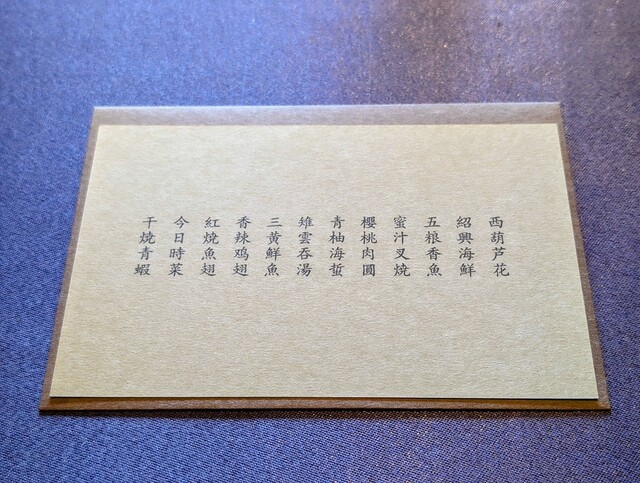 西葫芦花
紹興海鮮
五粮香魚
蜜汁叉燒
櫻桃肉圓
青柚海蜇
雉雲吞湯
三黄鮮魚
香辣鸡翅
紅燒魚翅
今日時菜
干燒青蝦